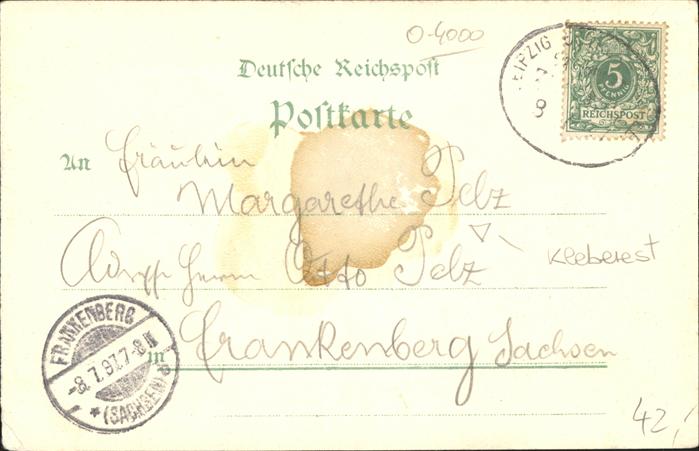 O-4000
LEIPZIG
5
PFENNIG
REICHSPOST
8
Deutsche Reichspost
Postkarte
An Fräulein
Margarethe Pelz
Kleberest
Adresse Herrn Otto Pelz
in Frankenberg Sachsen
FRANKENBERG
-8.7.97.7-8N
*(SACHSEN)
42,-